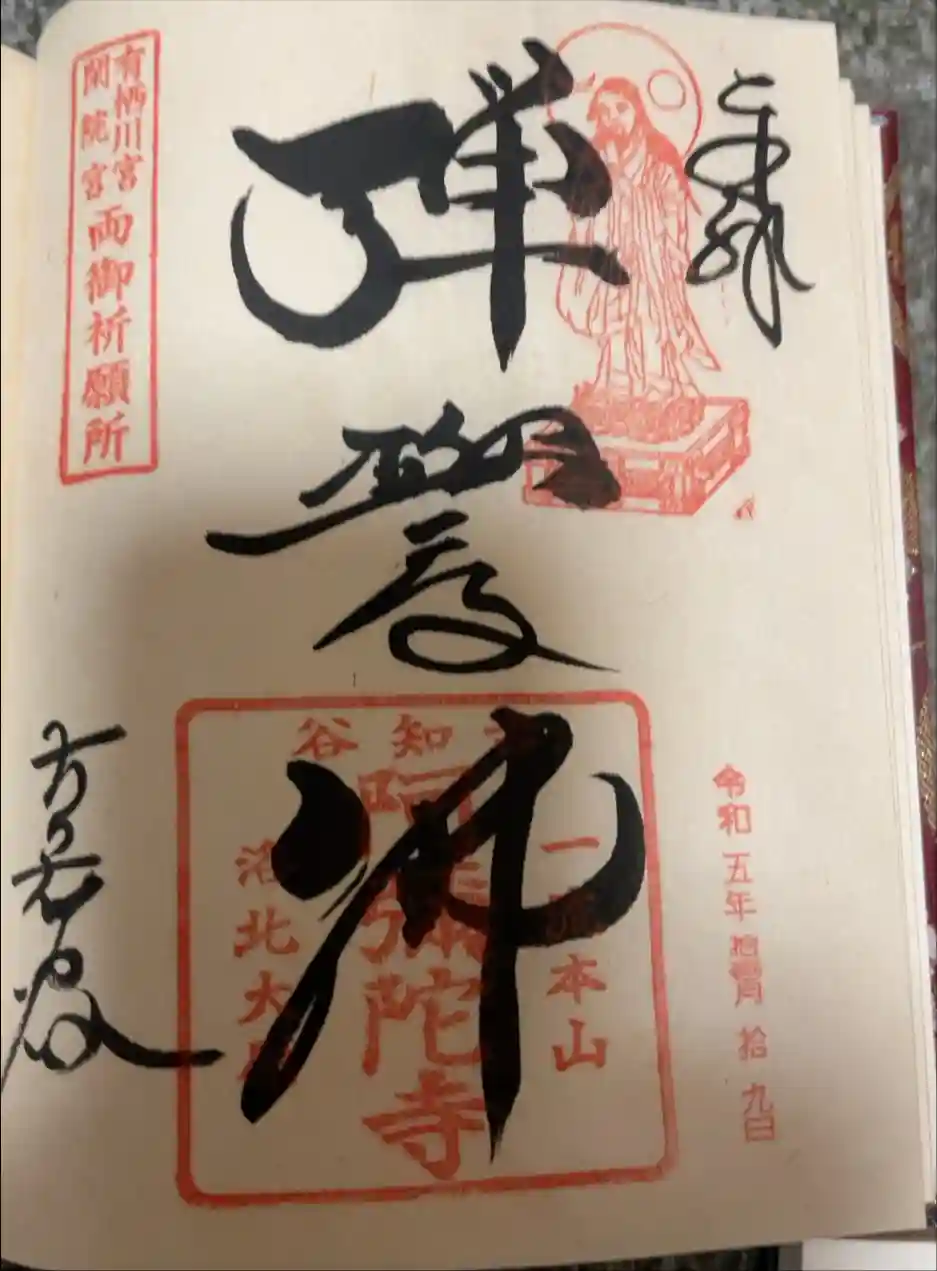 奉拝
令和五年拾壹月拾九日
弾誓佛
古知谷
一流本山
阿弥陀寺
洛北大原
有栖川宮
閑院宮
両御祈願所